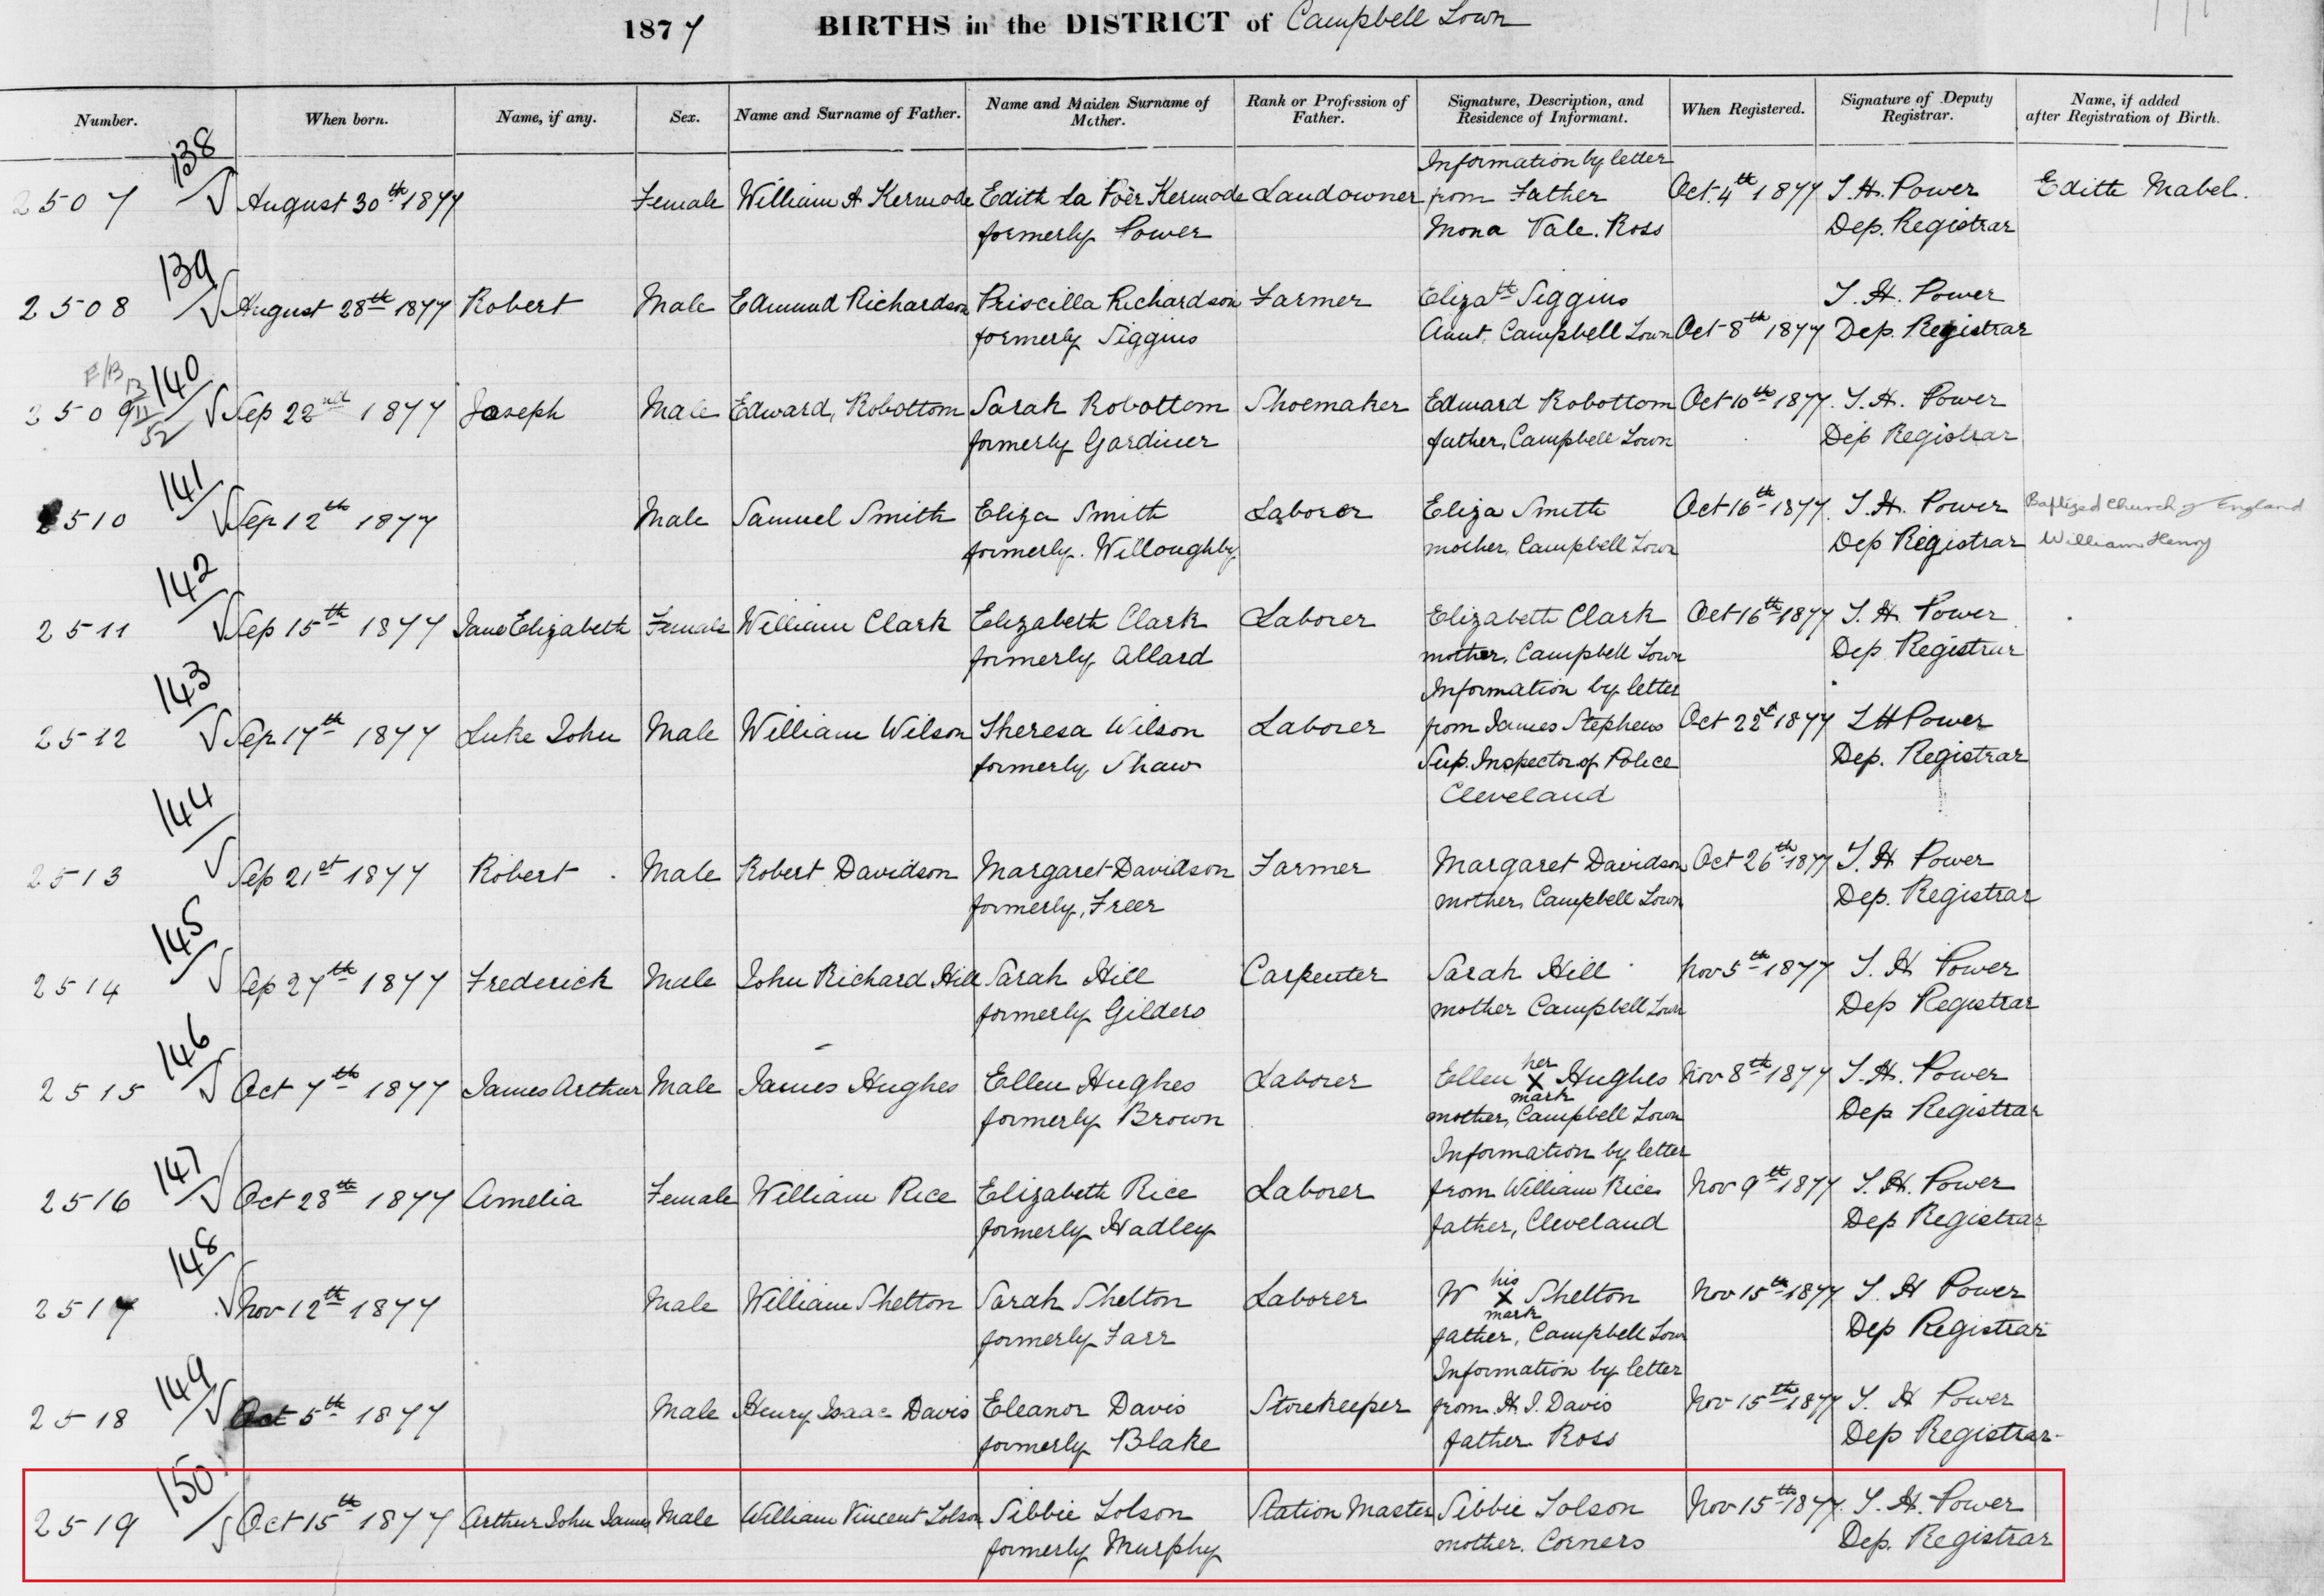 1877 BIRTHS in the DISTRICT of Campbell Town
Number. When born. Name, if any. Sex. Name and Surname of Father. Name and Maiden Surname of Mother. Rank or Profession of Father. Signature, Description, and Residence of Informant. When Registered. Signature of Deputy Registrar. Name, if added after Registration of Birth.
138
Information by letter
2507 August 30th 1877 Female William A Kermode Edith La Poèr Kermode Landowner from Father Oct. 4th 1877 T. H. Power Edith Mabel.
formerly Power Mona Vale. Ross Dep. Registrar
139
2508 August 28th 1877 Robert Male Edmund Richardson Priscilla Richardson Farmer Elizath Siggins T. H. Power
formerly Siggins Aunt, Campbell Town Oct 8th 1877 Dep. Registrar
140
2509 Sep 22nd 1877 Joseph Male Edward Robottom Sarah Robottom Shoemaker Edward Robottom Oct 10th 1877. T. H. Power
52 formerly Gardiner father, Campbell Town Dep Registrar
141
2510 Sep 12th 1877 Male Samuel Smith Eliza Smith Laborer Eliza Smith Oct 16th 1877. T. H. Power Baptized Church of England
formerly. Willoughby mother, Campbell Town Dep Registrar William Henry
142
2511 Sep 15th 1877 Jane Elizabeth Female William Clark Elizabeth Clark Laborer Elizabeth Clark Oct 16th 1877 T. H. Power
formerly Allard mother, Campbell Town Dep Registrar
143
Information by letter
2512 Sep 17th 1877 Luke John Male William Wilson Theresa Wilson Laborer from James Stephens Oct 22d 1877 T H Power
formerly Shaw Sup. Inspector of Police Dep. Registrar
Cleveland
144
2513 Sep 21st 1877 Robert Male Robert Davidson Margaret Davidson Farmer Margaret Davidson Oct 26th 1877 T. H Power
formerly, Freer mother, Campbell Town Dep. Registrar
145
2514 Sep 27th 1877 Frederick Male John Richard Hill Sarah Hill Carpenter Sarah Hill Nov 5th 1877 T. H Power
formerly Gilders mother Campbell Town Dep Registrar
146
her
2515 Oct 7th 1877 James Arthur Male James Hughes Ellen Hughes Laborer Ellen X Hughes Nov 8th 1877 T. H. Power
mark
formerly Brown mother, Campbell Town Dep Registrar
147
Information by letter
2516 Oct 28th 1877 Amelia Female William Rice Elizabeth Rice Laborer from William Rice Nov 9th 1877 T. H. Power
formerly Hadley father, Cleveland Dep Registrar
148
his
2517 Nov 12th 1877 Male William Shelton Sarah Shelton Laborer W X Shelton Nov 15th 1877 T. H Power
mark
formerly Farr father, Campbell Town Dep Registrar
149
Information by letter
2518 Oct 5th 1877 Male Henry Isaac Davis Eleanor Davis Storekeeper from H. I. Davis Nov 15th 1877 T. H Power
formerly Blake father Ross Dep Registrar
150
2519 Oct 15th 1877 Arthur John James Male William Vincent Tolson Sibbie Tolson Station Master Sibbie Tolson Nov 15th 1877. T. H. Power
formerly Murphy mother. Corners Dep. Registrar